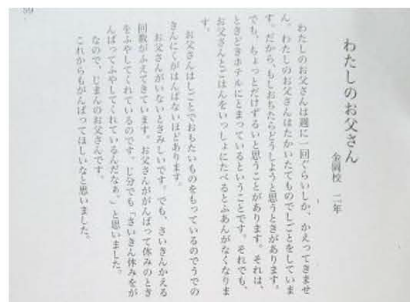 59
わたしのお父さん
金岡校 二年
わたしのお父さんは週に一回ぐらいしか、かえってきませ
ん。わたしのお父さんはたかいたてものでしごとをしていま
す。だから、もしおちたらどうしようと思うときがあります。
でも、ちょっとだけずるいと思うことがあります。それは、
ときどきホテルにとまっているということです。それでも、
お父さんとごはんをいっしょにたべるとふあんがなくなりま
す。
お父さんはしごとでおもたいものをもっているのでうでの
きんにくがはんぱないほどあります。
お父さんがいないときみしいです。でも、さいきんかえる
回数がふえてきています。お父さんががんばって休みのとき
をふやしてくれているのです。じ分でも「さいきん休みをが
んばってふやしてくれているんだなぁ。」と思いました。
なので、じまんのお父さんです。
これからもがんばってほしいなと思いました。